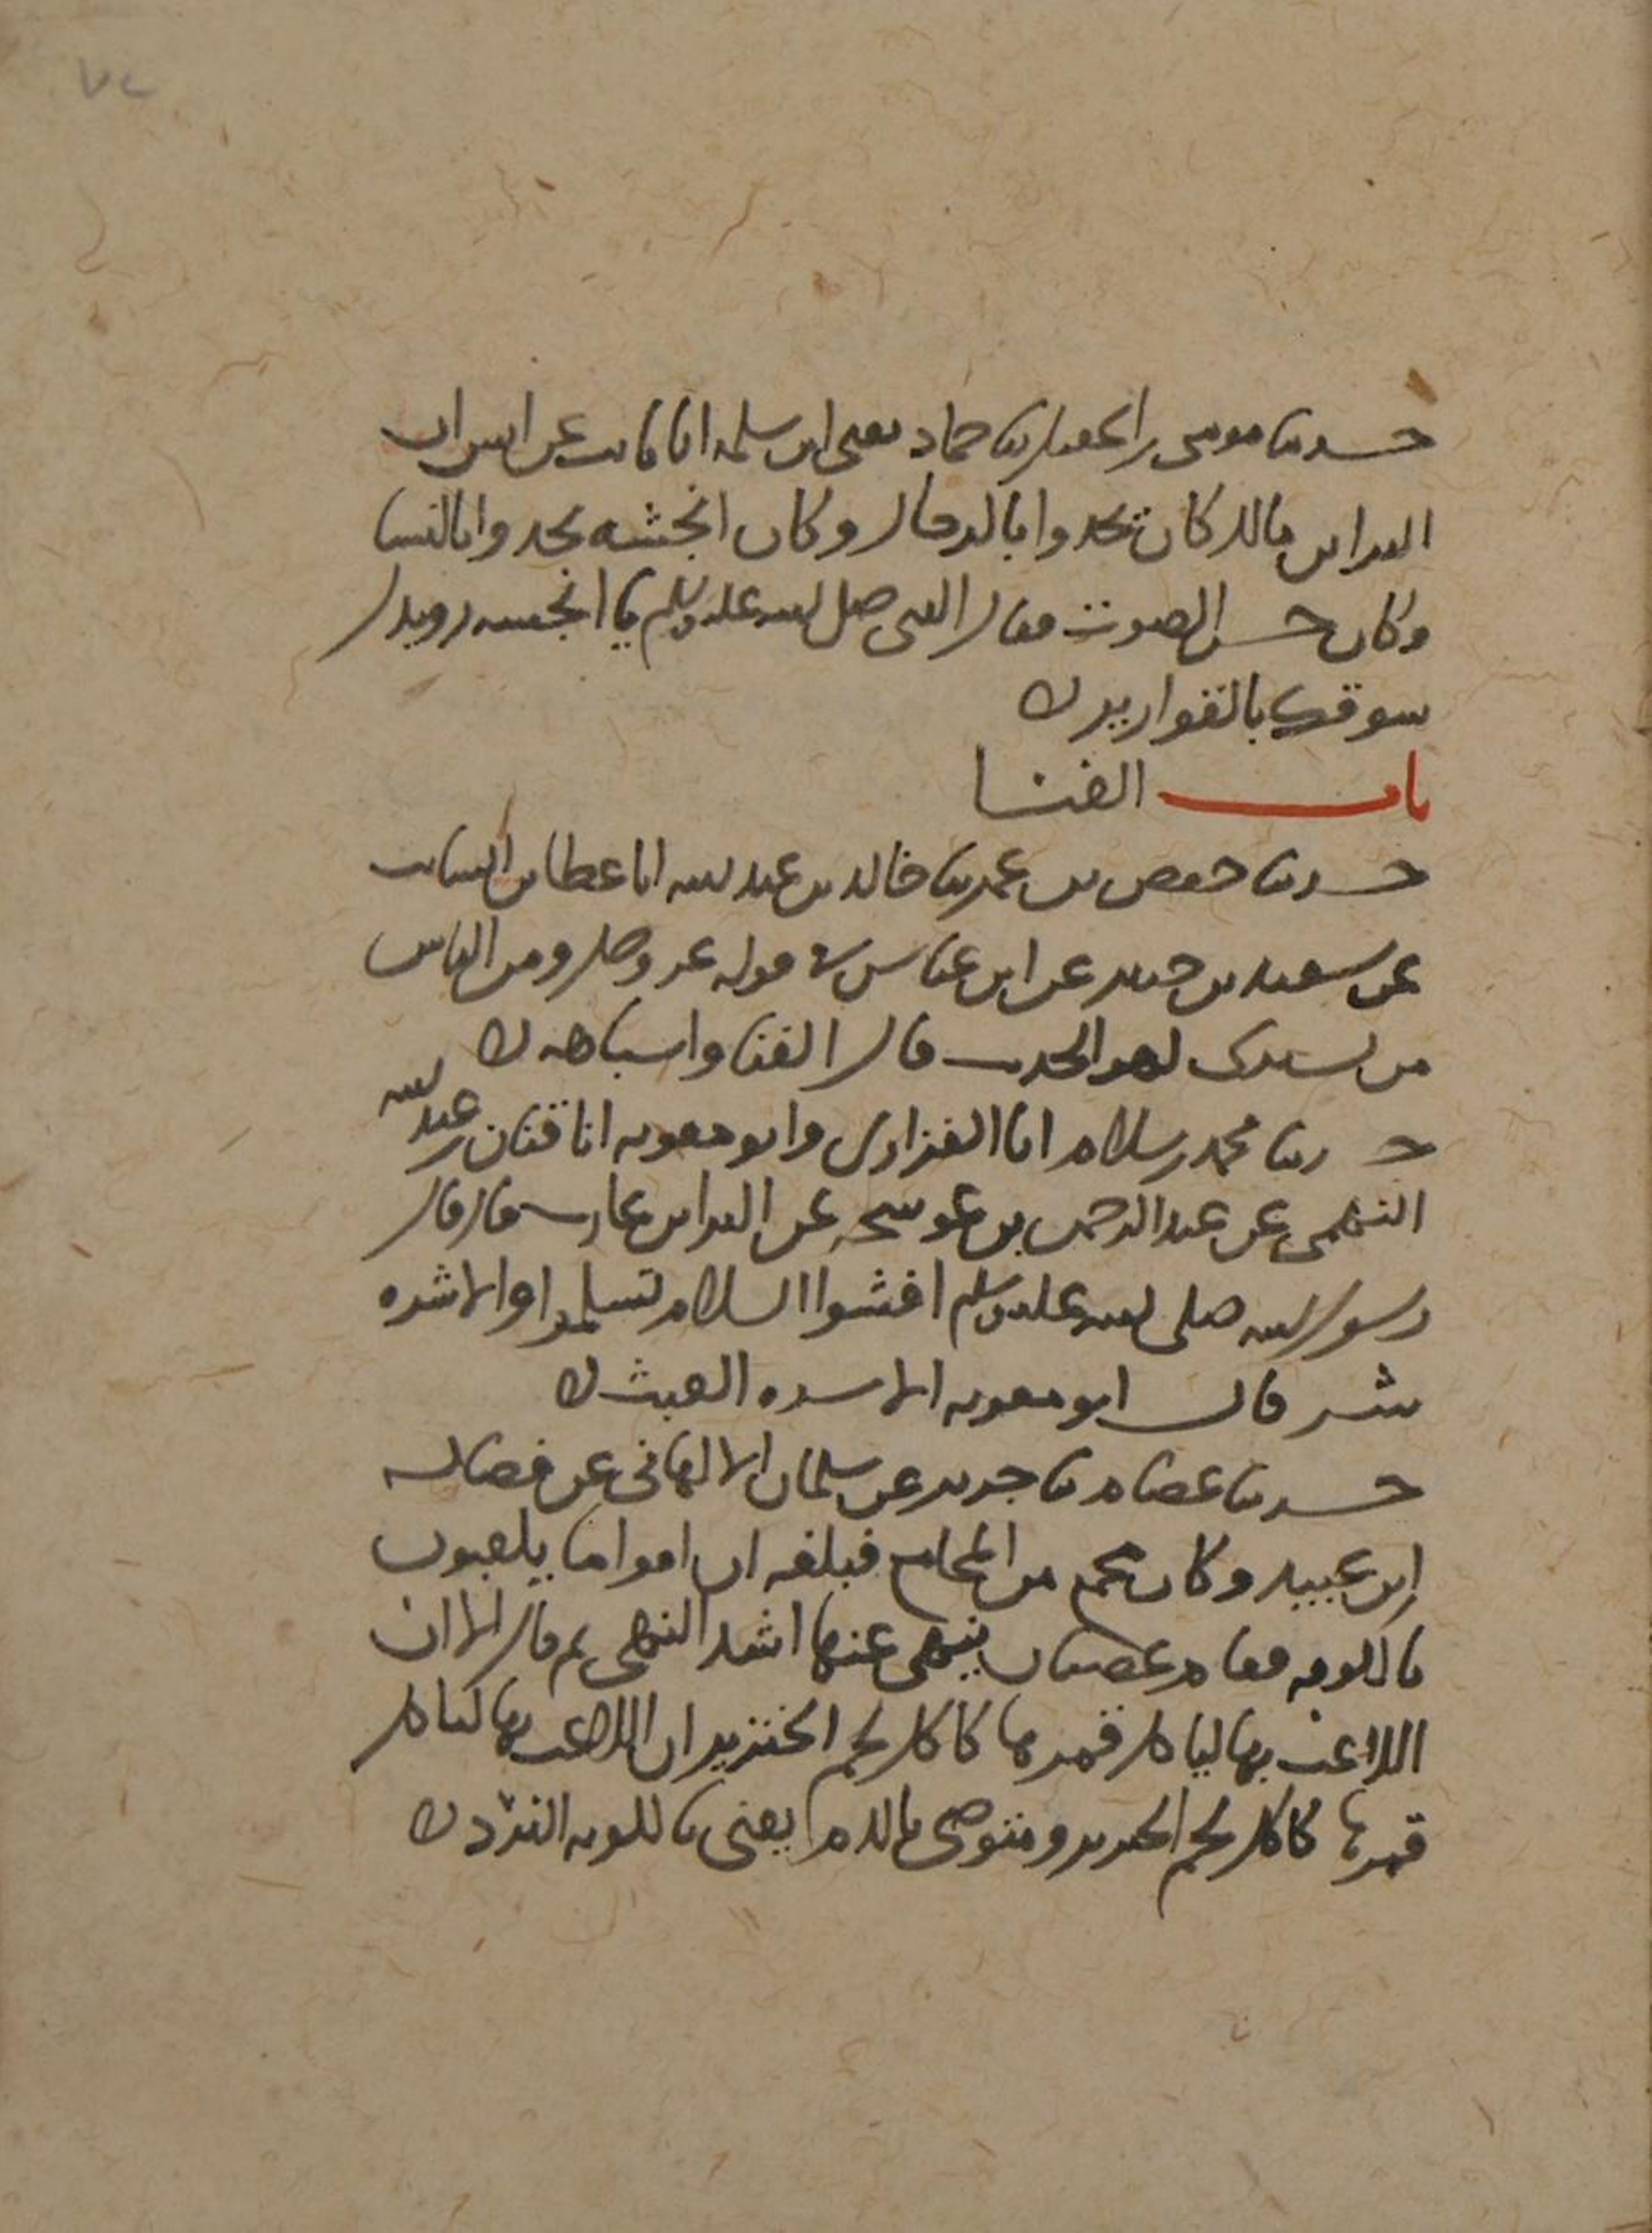 ٧٢
حدثنا موسى بن اسمعيل ثنا حماد يعنى ابن سلمه انا ثابت عن انس ان
البراء بن مالك كان يحدوا بالرجال وكان انجشه يحدوا بالنسا
وكان حسن الصوت فقال النبي صلى الله عليه وسلم يا انجشه رويدك
سوقك بالقوارير ه
باب الغنا
حدثنا حفص بن عمر ثنا خالد بن عبد الله انا عطا بن السايب
عن سعيد بن جبير عن ابن عباس في قوله عز وجل ومن الناس
من يشترى لهو الحديث قال الغنا واشباهه ه
حدثنا محمد بن سلام انا الفزارى وابو معويه انا قنان بن عبد الله
النهمى عن عبد الرحمن بن عوسجه عن البراء بن عازب قال قال
رسول الله صلى الله عليه وسلم افشوا السلام تسلموا والاشره
شر قال ابو معويه الاشره العبث ه
حدثنا عصام ثنا جرير عن سلمان الالهانى عن فضاله
ابن عبيد وكان بجمع من المجامع فبلغه ان اقواما يلعبون
بالكوبه فقام غضبان ينهى عنها اشد النهى ثم قال الا ان
اللاعب بها لياكل قمرها كاكل لحم الخنزير ان اللاعب بها لياكل
قمرها كاكل لحم الخنزير ومتوضى بالدم يعنى بالكوبه النرد ه